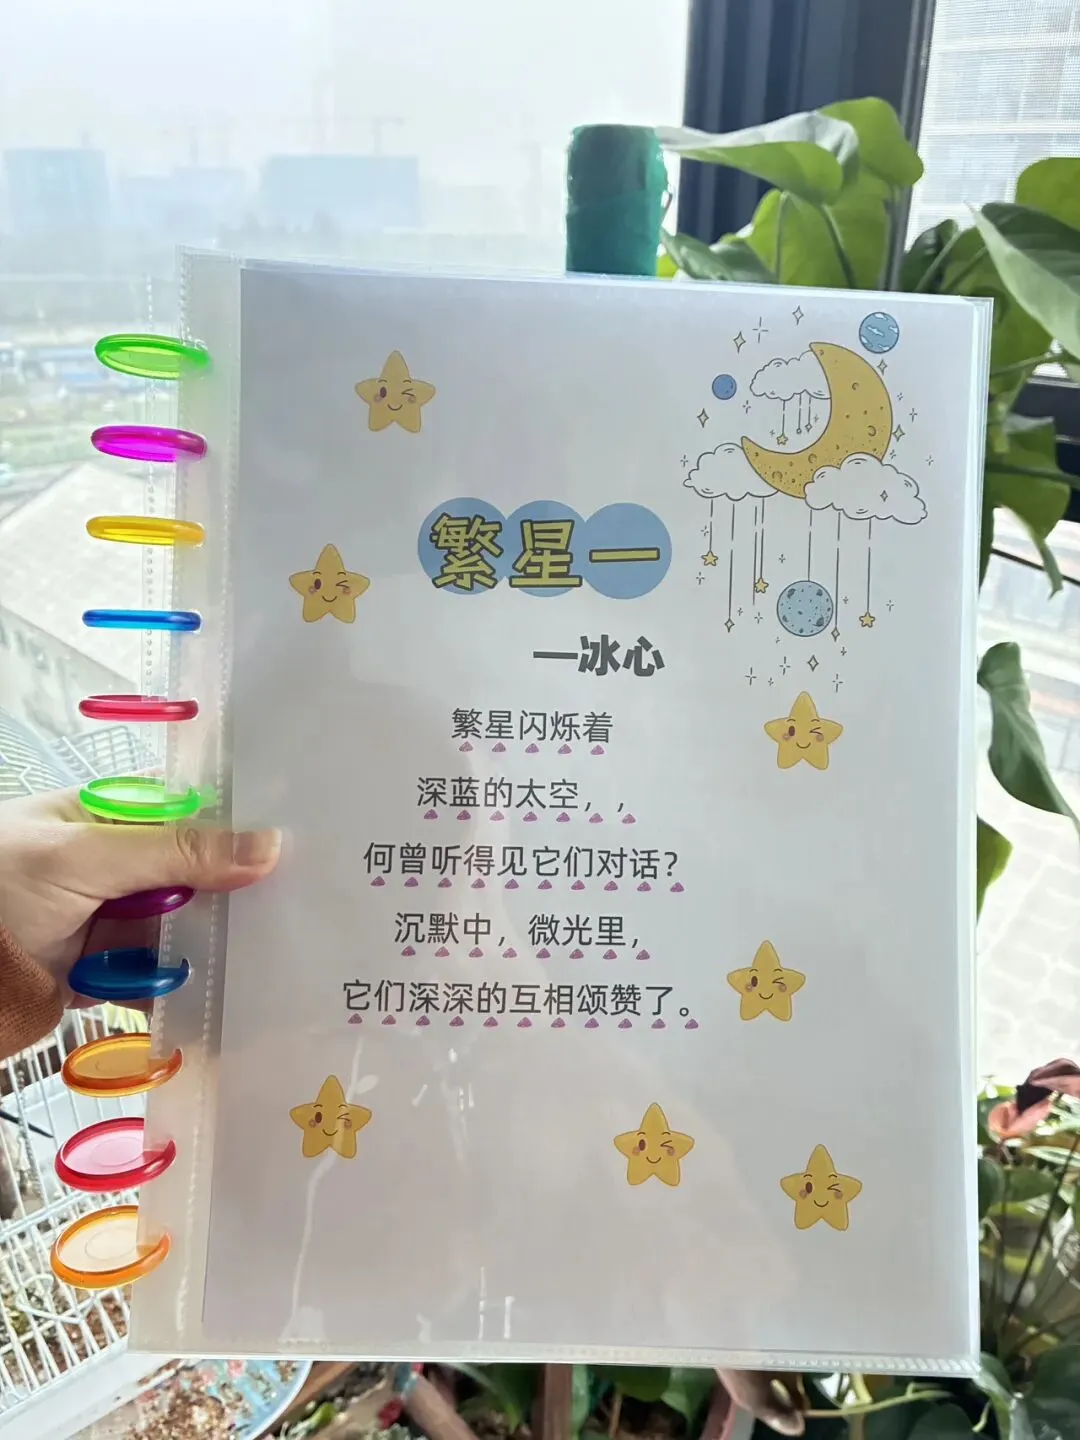 繁星一
—冰心
繁星闪烁着
深蓝的太空，，
何曾听得见它们对话？
沉默中，微光里，
它们深深的互相颂赞了。